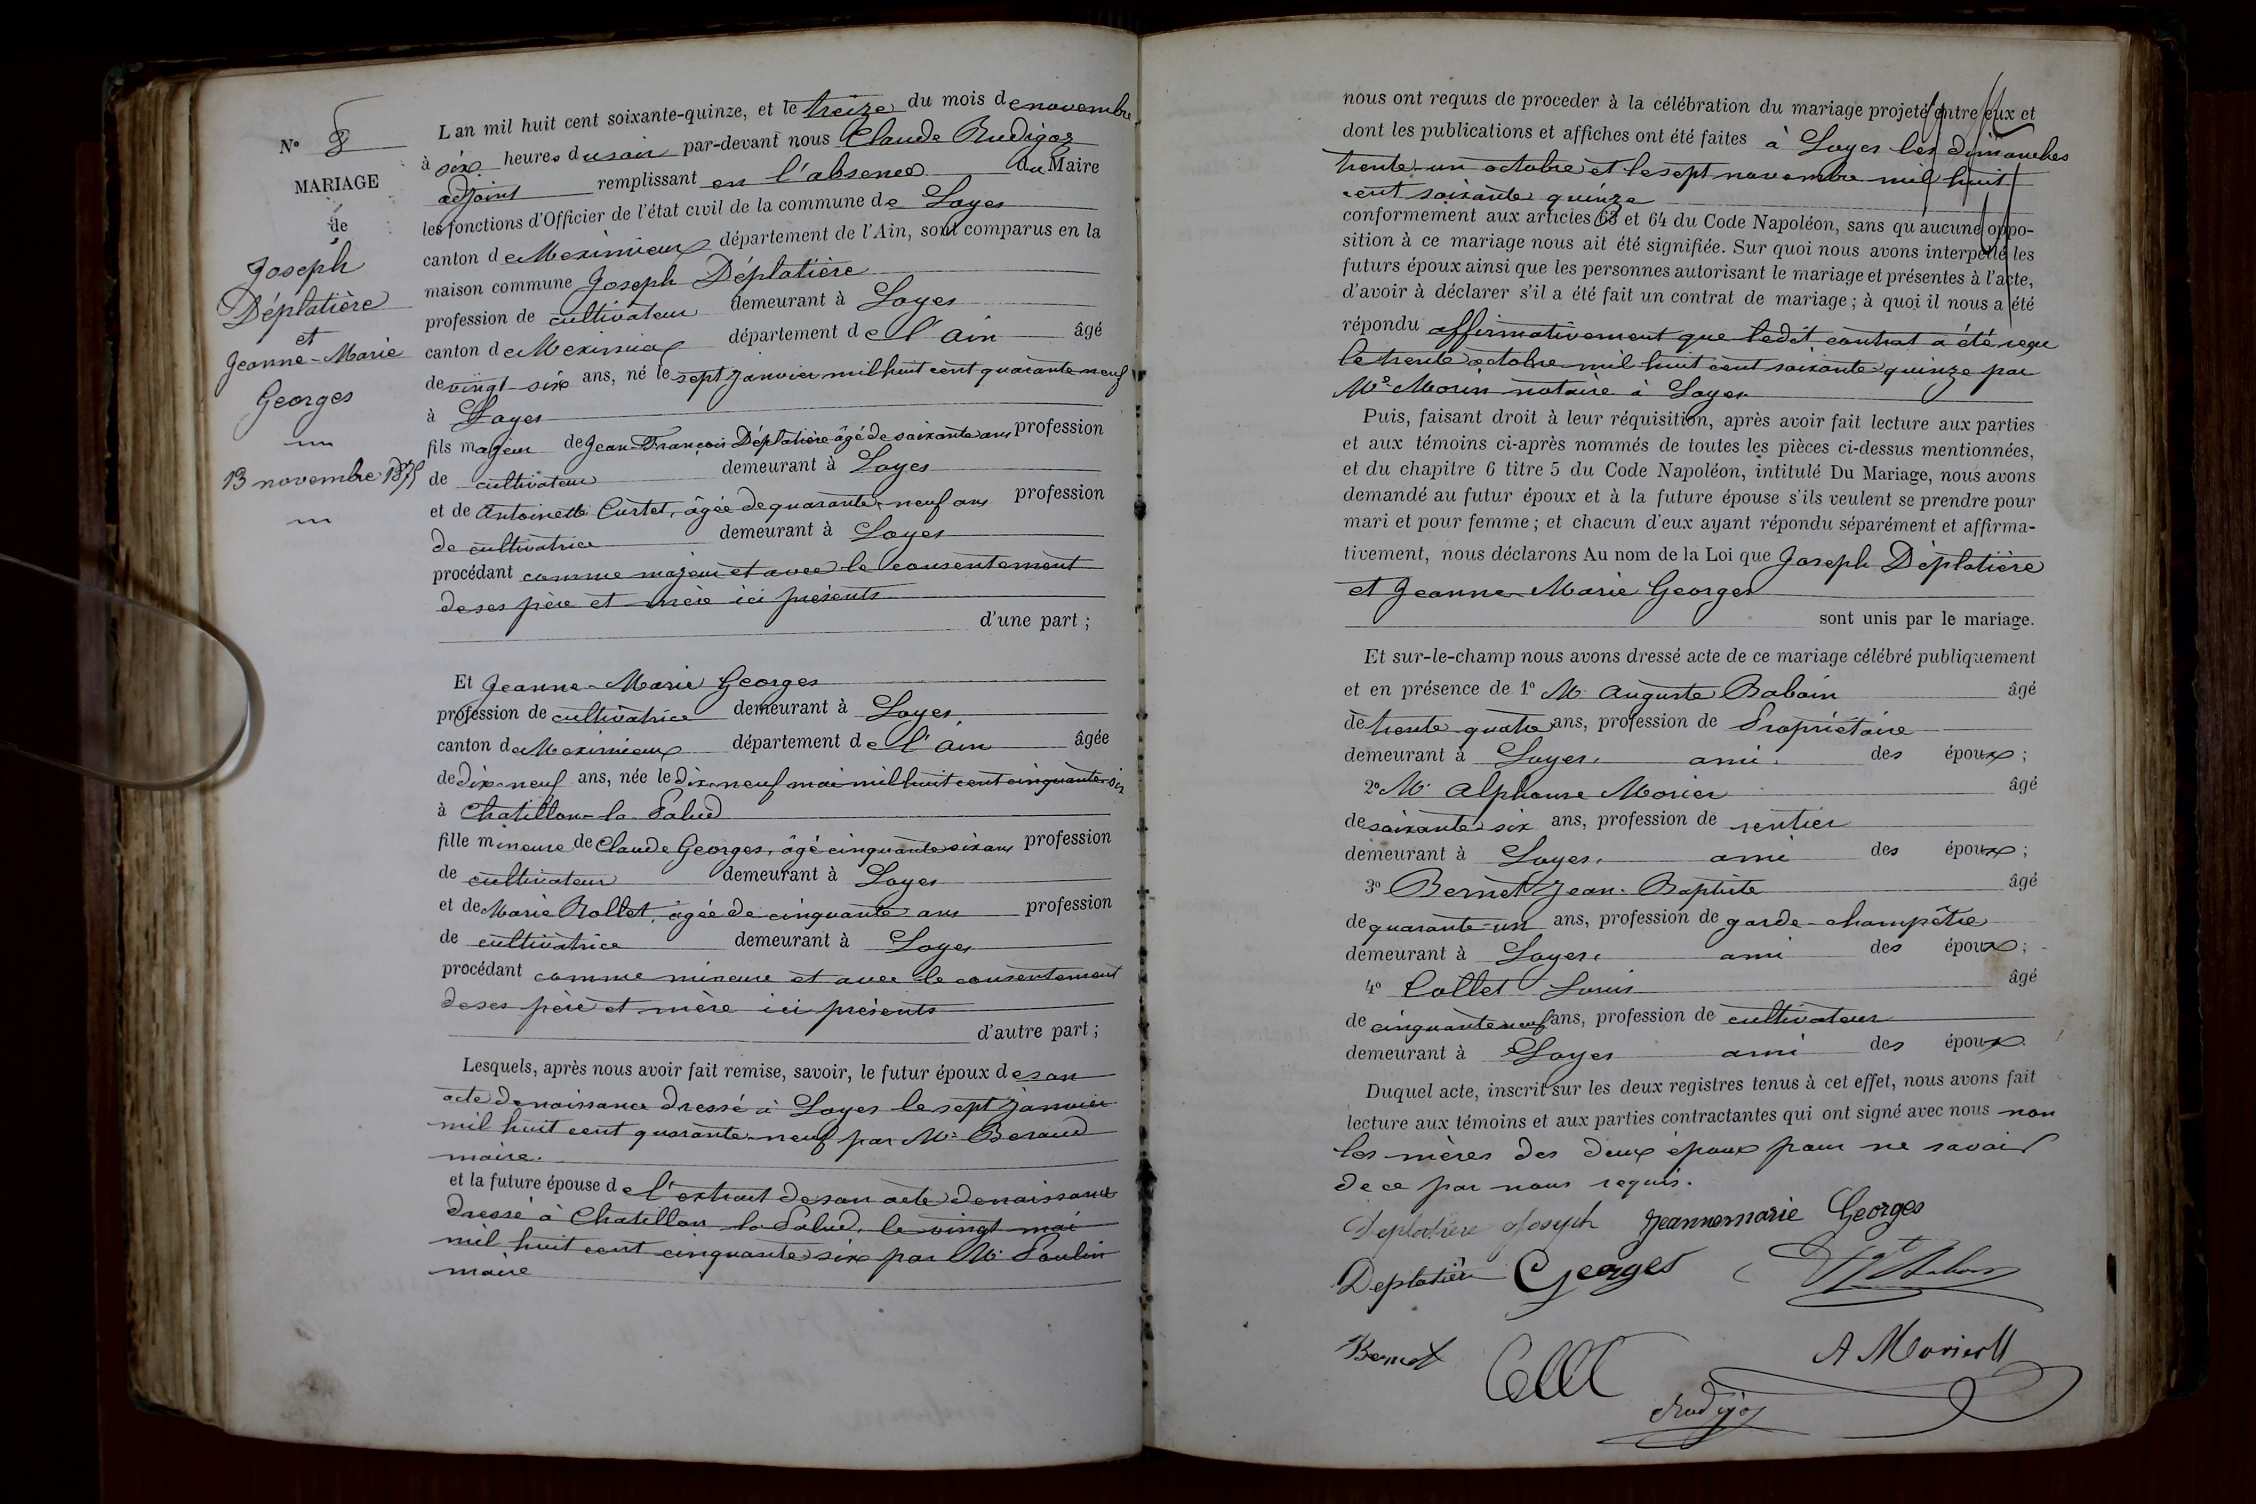 N° 8
MARIAGE
de
Joseph
Déplatière
et
Jeanne-Marie
Georges
13 novembre 1875
L'an mil huit cent soixante-quinze, et le treize du mois de novembre
à six heures du soir par-devant nous Claude Rudigoz
adjoint remplissant en l'absence du Maire
les fonctions d'Officier de l'état civil de la commune de Loyes
canton de Meximieux département de l'Ain, sont comparus en la
maison commune Joseph Déplatière
profession de cultivateur demeurant à Loyes
canton de Meximieux département de l'Ain âgé
de vingt-six ans, né le sept janvier mil huit cent quarante neuf
à Loyes
fils majeur de Jean François Déplatière âgé de soixante ans profession
de cultivateur demeurant à Loyes
et de Antoinette Curtet, âgée de quarante-neuf ans profession
de cultivatrice demeurant à Loyes
procédant comme majeur et avec le consentement
de ses père et mère ici présents
d'une part ;
Et Jeanne-Marie Georges
profession de cultivatrice demeurant à Loyes
canton de Meximieux département de l'Ain âgée
de dix-neuf ans, née le dix-neuf mai mil huit cent cinquante-six
à Chatillon-la-Palud
fille mineure de Claude Georges, âgé cinquante six ans profession
de cultivateur demeurant à Loyes
et de Marie Rollet, âgée de cinquante ans profession
de cultivatrice demeurant à Loyes
procédant comme mineure et avec le consentement
de ses père et mère ici présents
d'autre part ;
Lesquels, après nous avoir fait remise, savoir, le futur époux de son
acte de naissance dressé à Loyes le sept janvier
mil huit cent quarante-neuf par Mr Beraud
maire.
et la future épouse de l'extrait de son acte de naissance
dressé à Chatillon la Palud, le vingt mai
mil huit cent cinquante six par Mr Poulin
maire
nous ont requis de proceder à la célébration du mariage projeté entre eux et
dont les publications et affiches ont été faites à Loyes les dimanches
trente-un octobre et le sept novembre mil huit
cent soixante quinze
conformement aux articles 63 et 64 du Code Napoléon, sans qu'aucune oppo-
sition à ce mariage nous ait été signifiée. Sur quoi nous avons interpellé les
futurs époux ainsi que les personnes autorisant le mariage et présentes à l'acte,
d'avoir à déclarer s'il a été fait un contrat de mariage ; à quoi il nous a été
répondu affirmativement que ledit contrat a été reçu
le trente octobre mil huit cent soixante-quinze par
Me Morin notaire à Loyes
Puis, faisant droit à leur réquisition, après avoir fait lecture aux parties
et aux témoins ci-après nommés de toutes les pièces ci-dessus mentionnées,
et du chapitre 6 titre 5 du Code Napoléon, intitulé Du Mariage, nous avons
demandé au futur époux et à la future épouse s'ils veulent se prendre pour
mari et pour femme ; et chacun d'eux ayant répondu séparément et affirma-
tivement, nous déclarons Au nom de la Loi que Joseph Déplatière
et Jeanne-Marie Georges
sont unis par le mariage.
Et sur-le-champ nous avons dressé acte de ce mariage célébré publiquement
et en présence de 1° Mr Auguste Baboin âgé
de trente-quatre ans, profession de Propriétaire
demeurant à Loyes, ami des époux ;
2° Mr Alphonse Morier âgé
de soixante six ans, profession de rentier
demeurant à Loyes, ami des époux ;
3° Bernet Jean-Baptiste âgé
de quarante-un ans, profession de garde-champêtre
demeurant à Loyes, ami des époux ;
4° Collet Louis âgé
de cinquante neuf ans, profession de cultivateur
demeurant à Loyes ami des époux
Duquel acte, inscrit sur les deux registres tenus à cet effet, nous avons fait
lecture aux témoins et aux parties contractantes qui ont signé avec nous non
les mères des deux époux pour ne savoir
de ce par nous requis.
Deplatière Joseph Jeannemarie Georges
Deplatière Georges
Bernet A Morier
Rudigoz